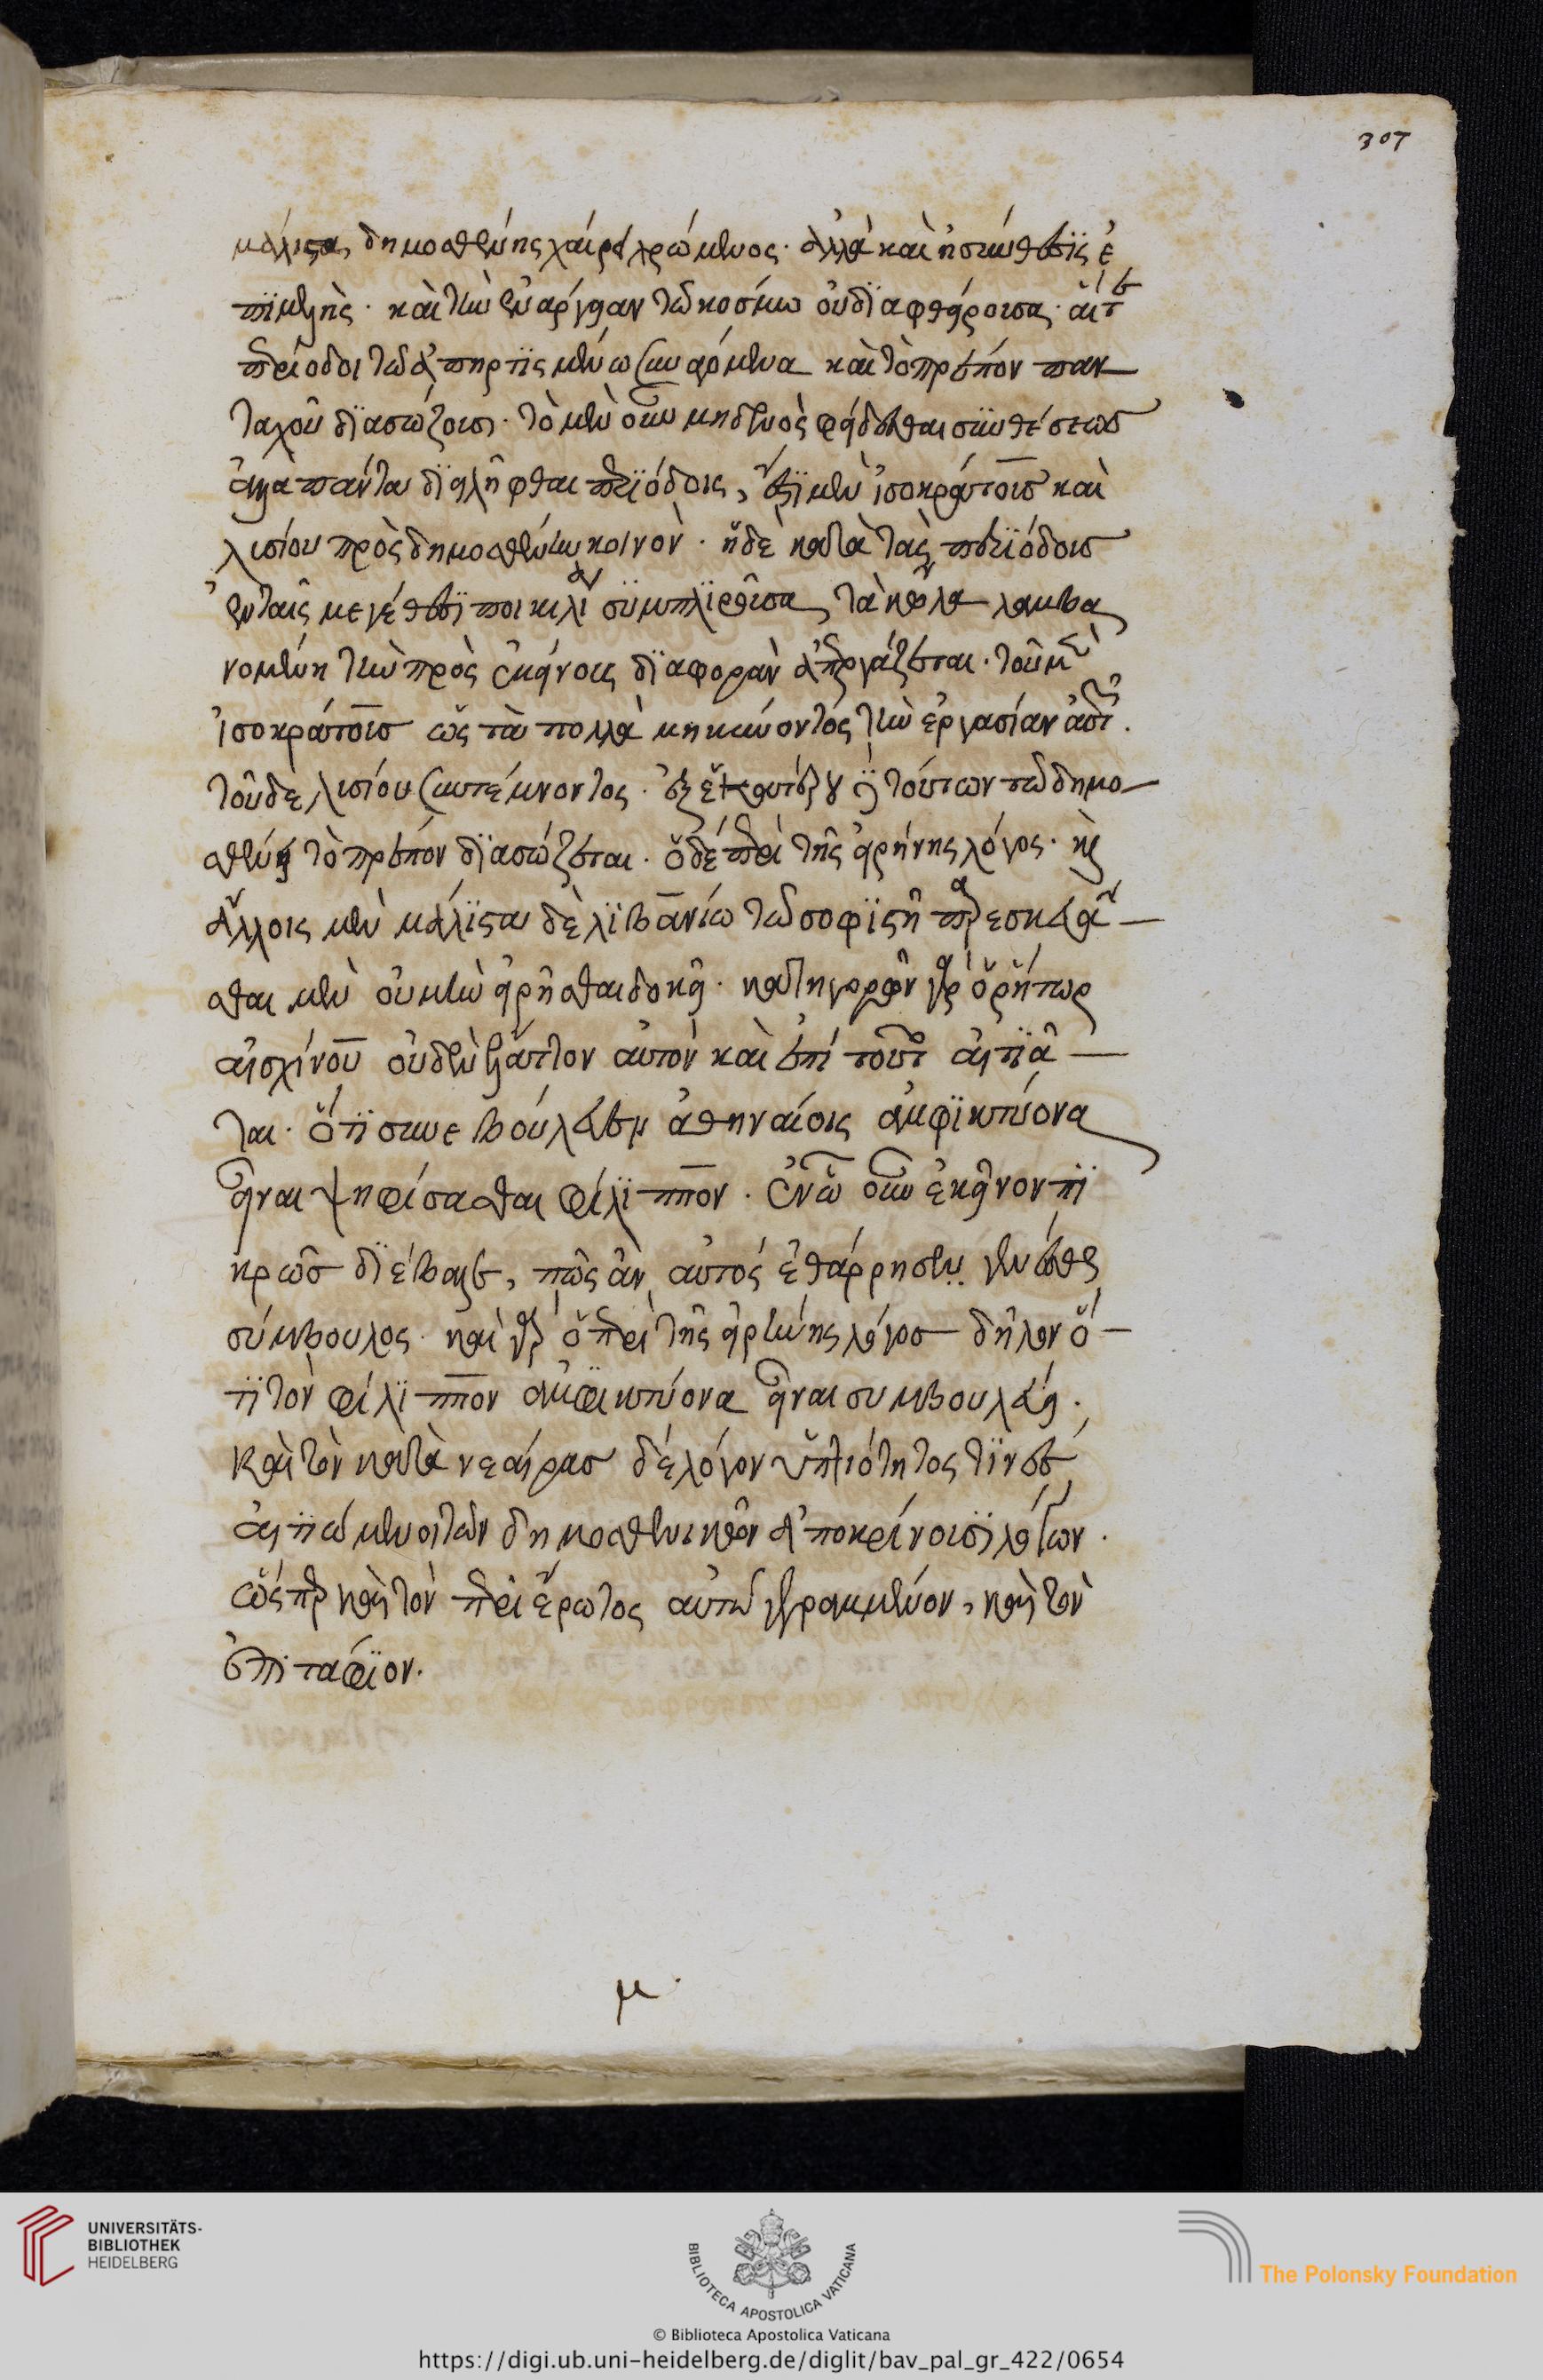 μάλιστα δημοσθένης χαίρει χρώμενος· ἀλλὰ καὶ ἡ σύνθεσις ἐ
πιμελὴς· καὶ τὴν ἐνάργειαν τῶ κόσμω οὐ διαφθείρουσα· αἵ τε
περίοδοι τῶ ἀπηρτισμένω συναγόμεναι καὶ τὸ πρέπον παν
ταχοῦ διασώζουσι· τὸ μὲν οὖν μηδενὸς φείδεσθαι συνθέσεως
ἀλλὰ πάντα διειλῆφθαι περιόδοις, ἔστι μὲν ἰσοκράτους καὶ
λυσίου πρὸς δημοσθένην κοινὸν· ἡ δὲ κατὰ τὰς περιόδους
ἐν ταῖς μεγέθεσι ποικιλία συμπληροῦσα τὰ κῶλα λαμβα
νομένη τὴν πρὸς ἐκείνους διαφορὰν ἀπεργάζεται· τοῦ μὲν
ἰσοκράτους ὡς τὰ πολλὰ μηκύνοντος τὴν ἐργασίαν αὐτῶν·
τοῦ δὲ λυσίου συντέμνοντος· ἐξ ἑκατέρου δὲ τούτων τῶ δημο
σθένει τὸ πρέπον διασώζεται· ὁ δὲ περὶ τῆς εἰρήνης λόγος· καὶ
ἄλλοις μὲν μάλιστα δὲ λιβανίω τῶ σοφιστῆ παρεσκευά
σθαι μὲν οὐ μὴν εἰρῆσθαι δοκεῖ· κατηγορῶν γὰρ ὁ ῥήτωρ
αἰσχίνου οὐδὲν ἔλαττον αὐτὸν καὶ ἐπὶ τούτω αἰτιᾶ
ται· ὅτι συνεβούλευεν ἀθηναίοις ἀμφικτύονα
εἶναι ψηφίσασθαι φίλιππον· ἐν ὧ οὖν ἐκεῖνον πι
κρῶς διέβαλε, πῶς ἂν αὐτὸς ἐθάρρησεν γενέσθαι
σύμβουλος· καὶ γὰρ ὁ περὶ τῆς εἰρήνης λόγος δῆλον ὅ
τι τὸν φίλιππον ἀμφικτύονα εἶναι συμβουλεύει·
καὶ τὸν κατὰ νεαίρας δὲ λόγον ὑπτιότητος τινὲς
αἰτιώμενοι τῶν δημοσθενικῶν ἀποκρίνουσι λόγων·
ὥσπερ καὶ τὸν περὶ ἔρωτος αὐτῶ γεγραμμένον, καὶ τὸν
ἐπιτάφιον·
μ·
307
UNIVERSITÄTS-
BIBLIOTHEK
HEIDELBERG
BIBLIOTECA APOSTOLICA VATICANA
The Polonsky Foundation
© Biblioteca Apostolica Vaticana
https://digi.ub.uni-heidelberg.de/diglit/bav_pal_gr_422/0654